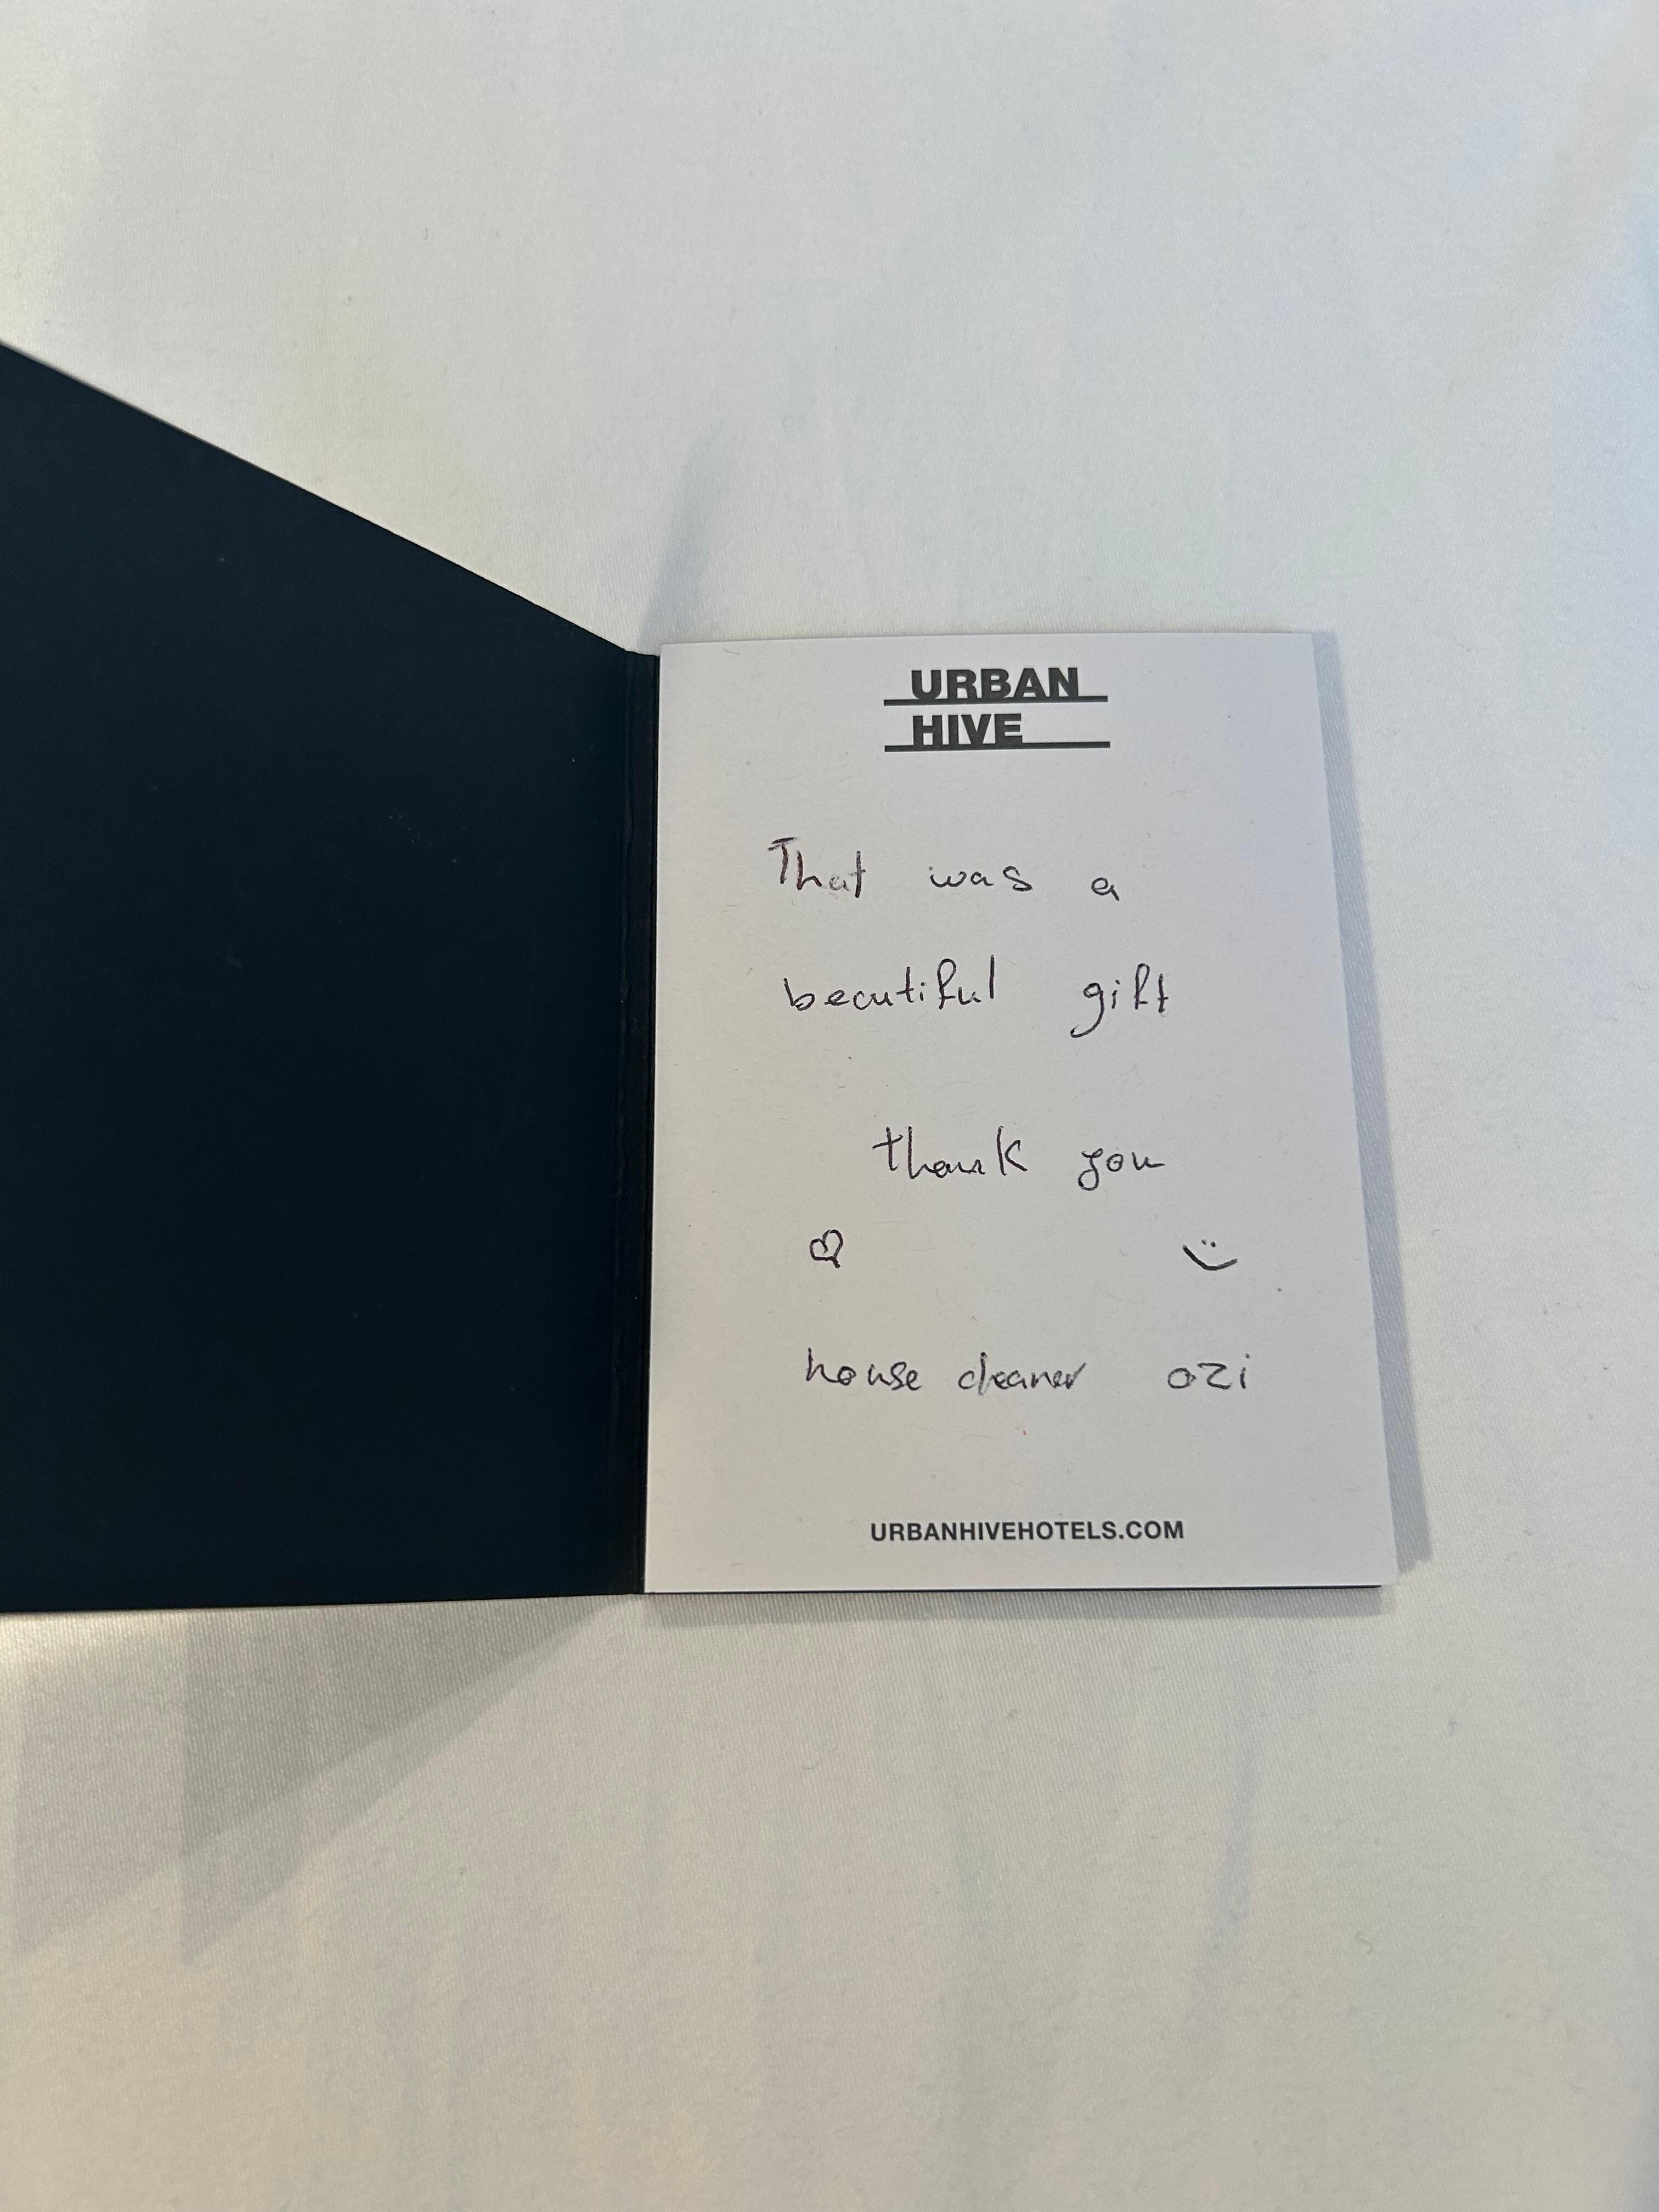 URBAN
HIVE
That was a
beautiful gift
thank you
house cleaner ozi
URBANHIVEHOTELS.COM